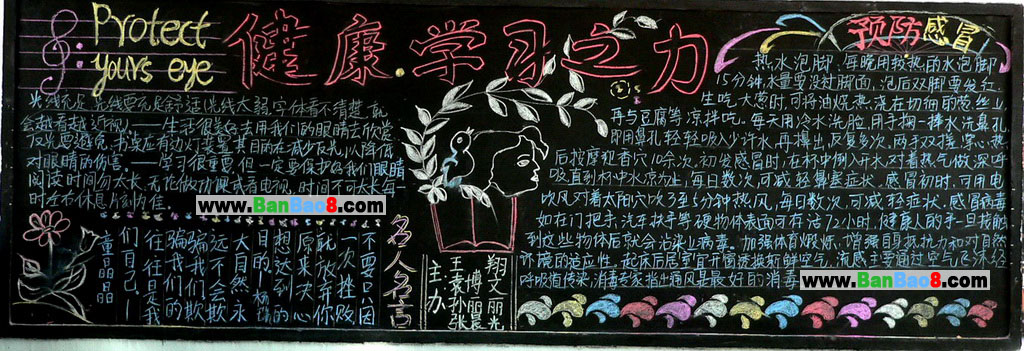 Protect
yours eye
健康·学习之力
预防感冒
热水泡脚。每晚用较热的水泡脚
15分钟,水量要没过脚面,泡后双脚要发红。
生吃大葱时,可将油烧热浇在切细的葱丝上,
再与豆腐等凉拌吃。每天用冷水洗脸,用手掬一捧水洗鼻孔,
即用鼻孔轻轻吸入少许水,再擤出,反复多次。两手对搓,掌心热
后按摩迎香穴10余次。初发感冒时,在杯中倒入开水,对着热气做深呼
吸,直到杯中水凉为止,每日数次,可减轻鼻塞症状。感冒初时,可用电
吹风对着太阳穴吹3至5分钟热风,每日数次,可减轻症状。感冒病毒
如在门把手、汽车扶手等硬物体表面可存活72小时,健康人的手一旦接触
到这些物体后就会沾染上病毒。加强体育煅炼,增强自身抵抗力和对自然
环境的适应性。起床后居室宜开窗透换新鲜空气。流感主要通过空气飞沫经
呼吸道传染,消毒专家指出通风是最好的消毒
光线充足:光线要充足舒适,光线太弱,字体看不清楚,就
会越看越近视。——生活很美好,去用我们的眼睛去欣赏
反光要避免:书桌应有边灯装置,其目的在减少反光以降低
对眼睛的伤害。——学习很重要,但一定要保护好我们眼睛
阅读时间勿太长:无论做功课或看电视,时间不可太长,每一
时左右休息片刻为佳。
www.BanBao8.com
www.BanBao8.com
名人名言
不要只因
一次挫败
就放弃你
原来决心
想达到的
目的。
大自然永
远不会欺
骗我们,欺
骗我们的
往往是我
们自己。
童晶晶
主办